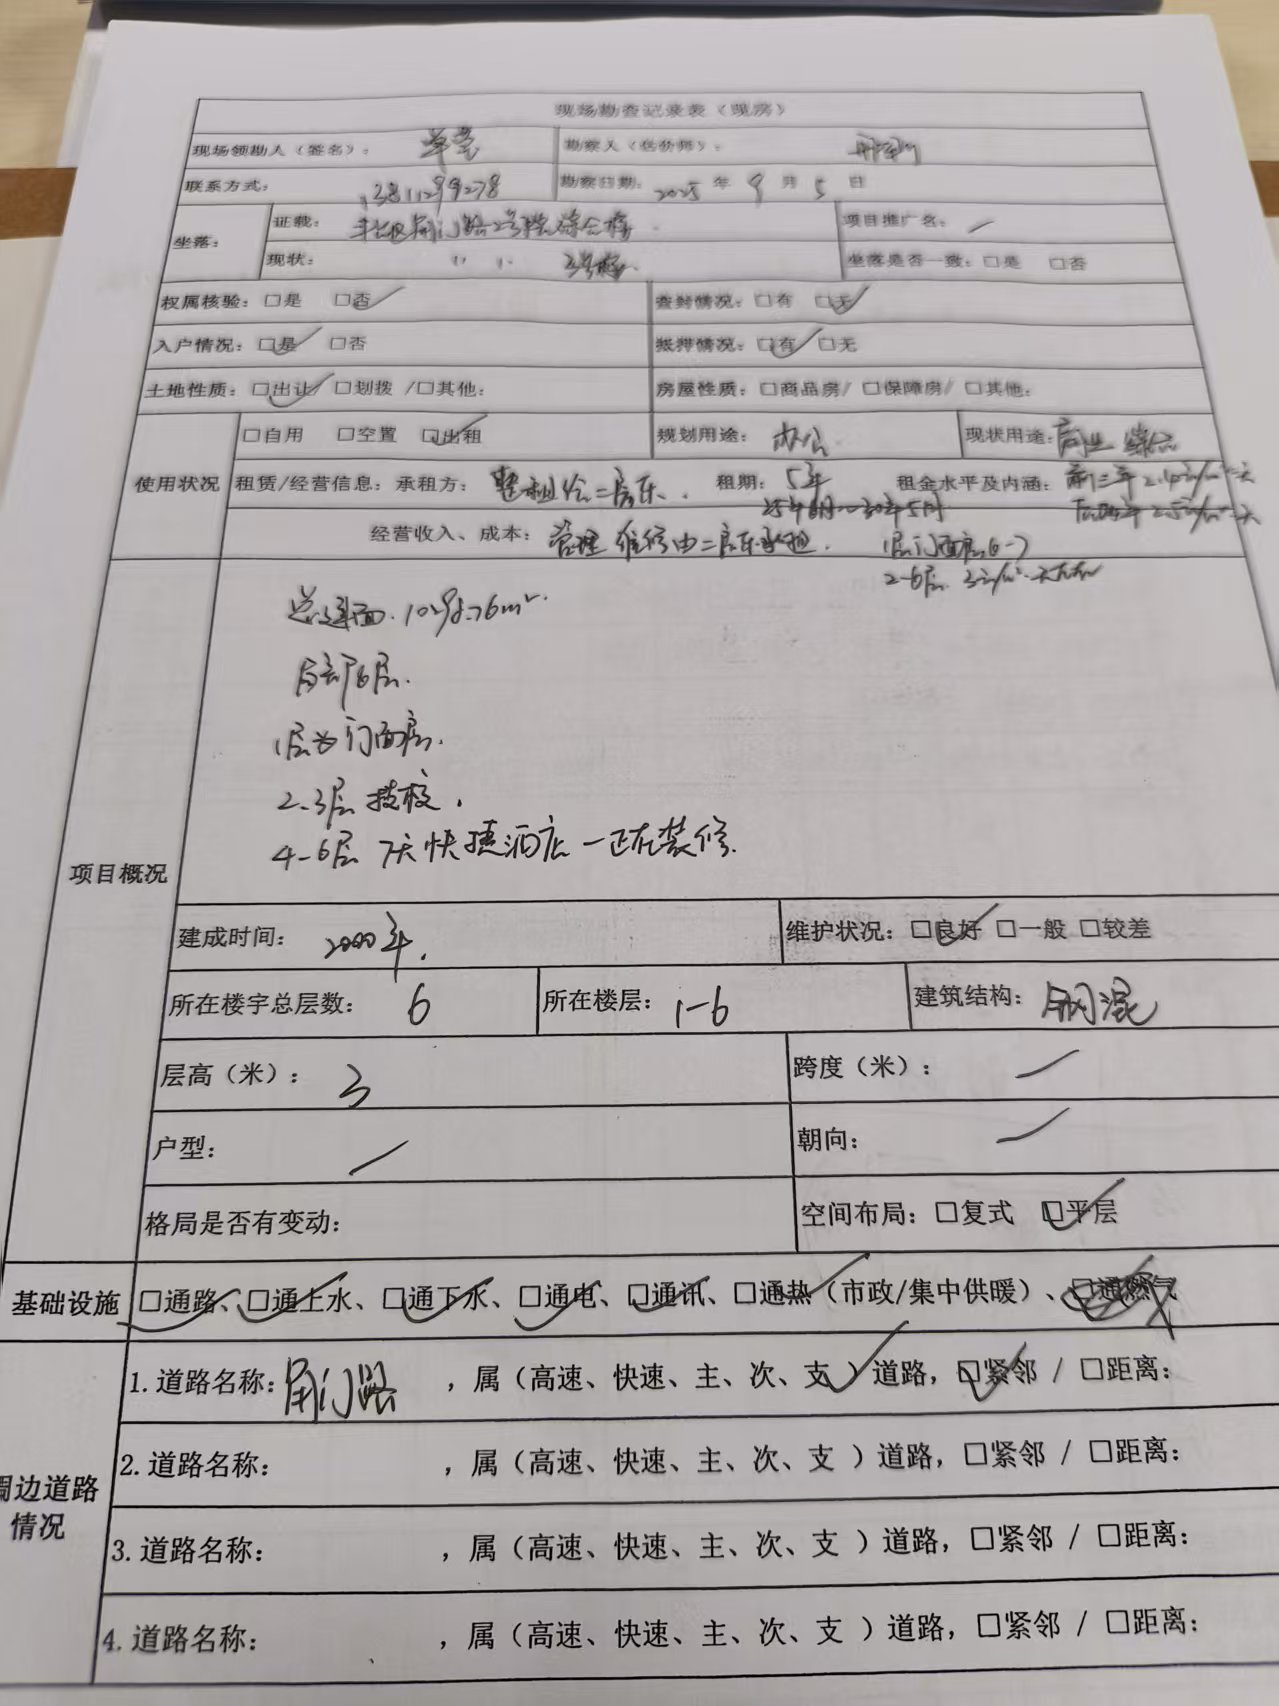 现场勘查记录表（现房）
现场领勘人（签名）： 勘察人（估价师）：
联系方式：13811299278 勘察日期：2025年9月5日
坐落： 证载：丰台区角门路2号院综合楼 项目推广名：/
现状：〃 〃 3号楼. 坐落是否一致：□是 □否
权属核验：□是 □否✓ 查封情况：□有 □无✓
入户情况：□是✓ □否 抵押情况：□有✓ □无
土地性质：□出让✓/□划拨 /□其他： 房屋性质：□商品房/ □保障房/ □其他：
使用状况 □自用 □空置 □出租✓ 规划用途：办公 现状用途：商业 综合
租赁/经营信息：承租方：整租给二房东. 租期：5年 租金水平及内涵：前三年2.4元/m²·天
25年6月—30年5月 后两年2.5元/m²·天
经营收入、成本：管理 维修由二房东承担. 1层门面房6-7
2-6层 3元/m²·天左右
项目概况
总建面.
局部6层.
1层为门面房.
2-3层 技校.
4-6层 7天快捷酒店—正在装修.
建成时间：2000年. 维护状况：□良好✓ □一般 □较差
所在楼宇总层数：6 所在楼层：1-6 建筑结构：钢混
层高（米）：3 跨度（米）：/
户型：/ 朝向：/
格局是否有变动： 空间布局：□复式 □平层✓
基础设施 □通路✓、□通上水✓、□通下水✓、□通电✓、□通讯✓、□通热✓（市政/集中供暖）、□通燃气
周边道路情况
1.道路名称：角门路 ，属（高速、快速、主、次、支✓）道路，□紧邻✓ / □距离：
2.道路名称： ，属（高速、快速、主、次、支 ）道路，□紧邻 / □距离：
3.道路名称： ，属（高速、快速、主、次、支 ）道路，□紧邻 / □距离：
4.道路名称： ，属（高速、快速、主、次、支 ）道路，□紧邻 / □距离：